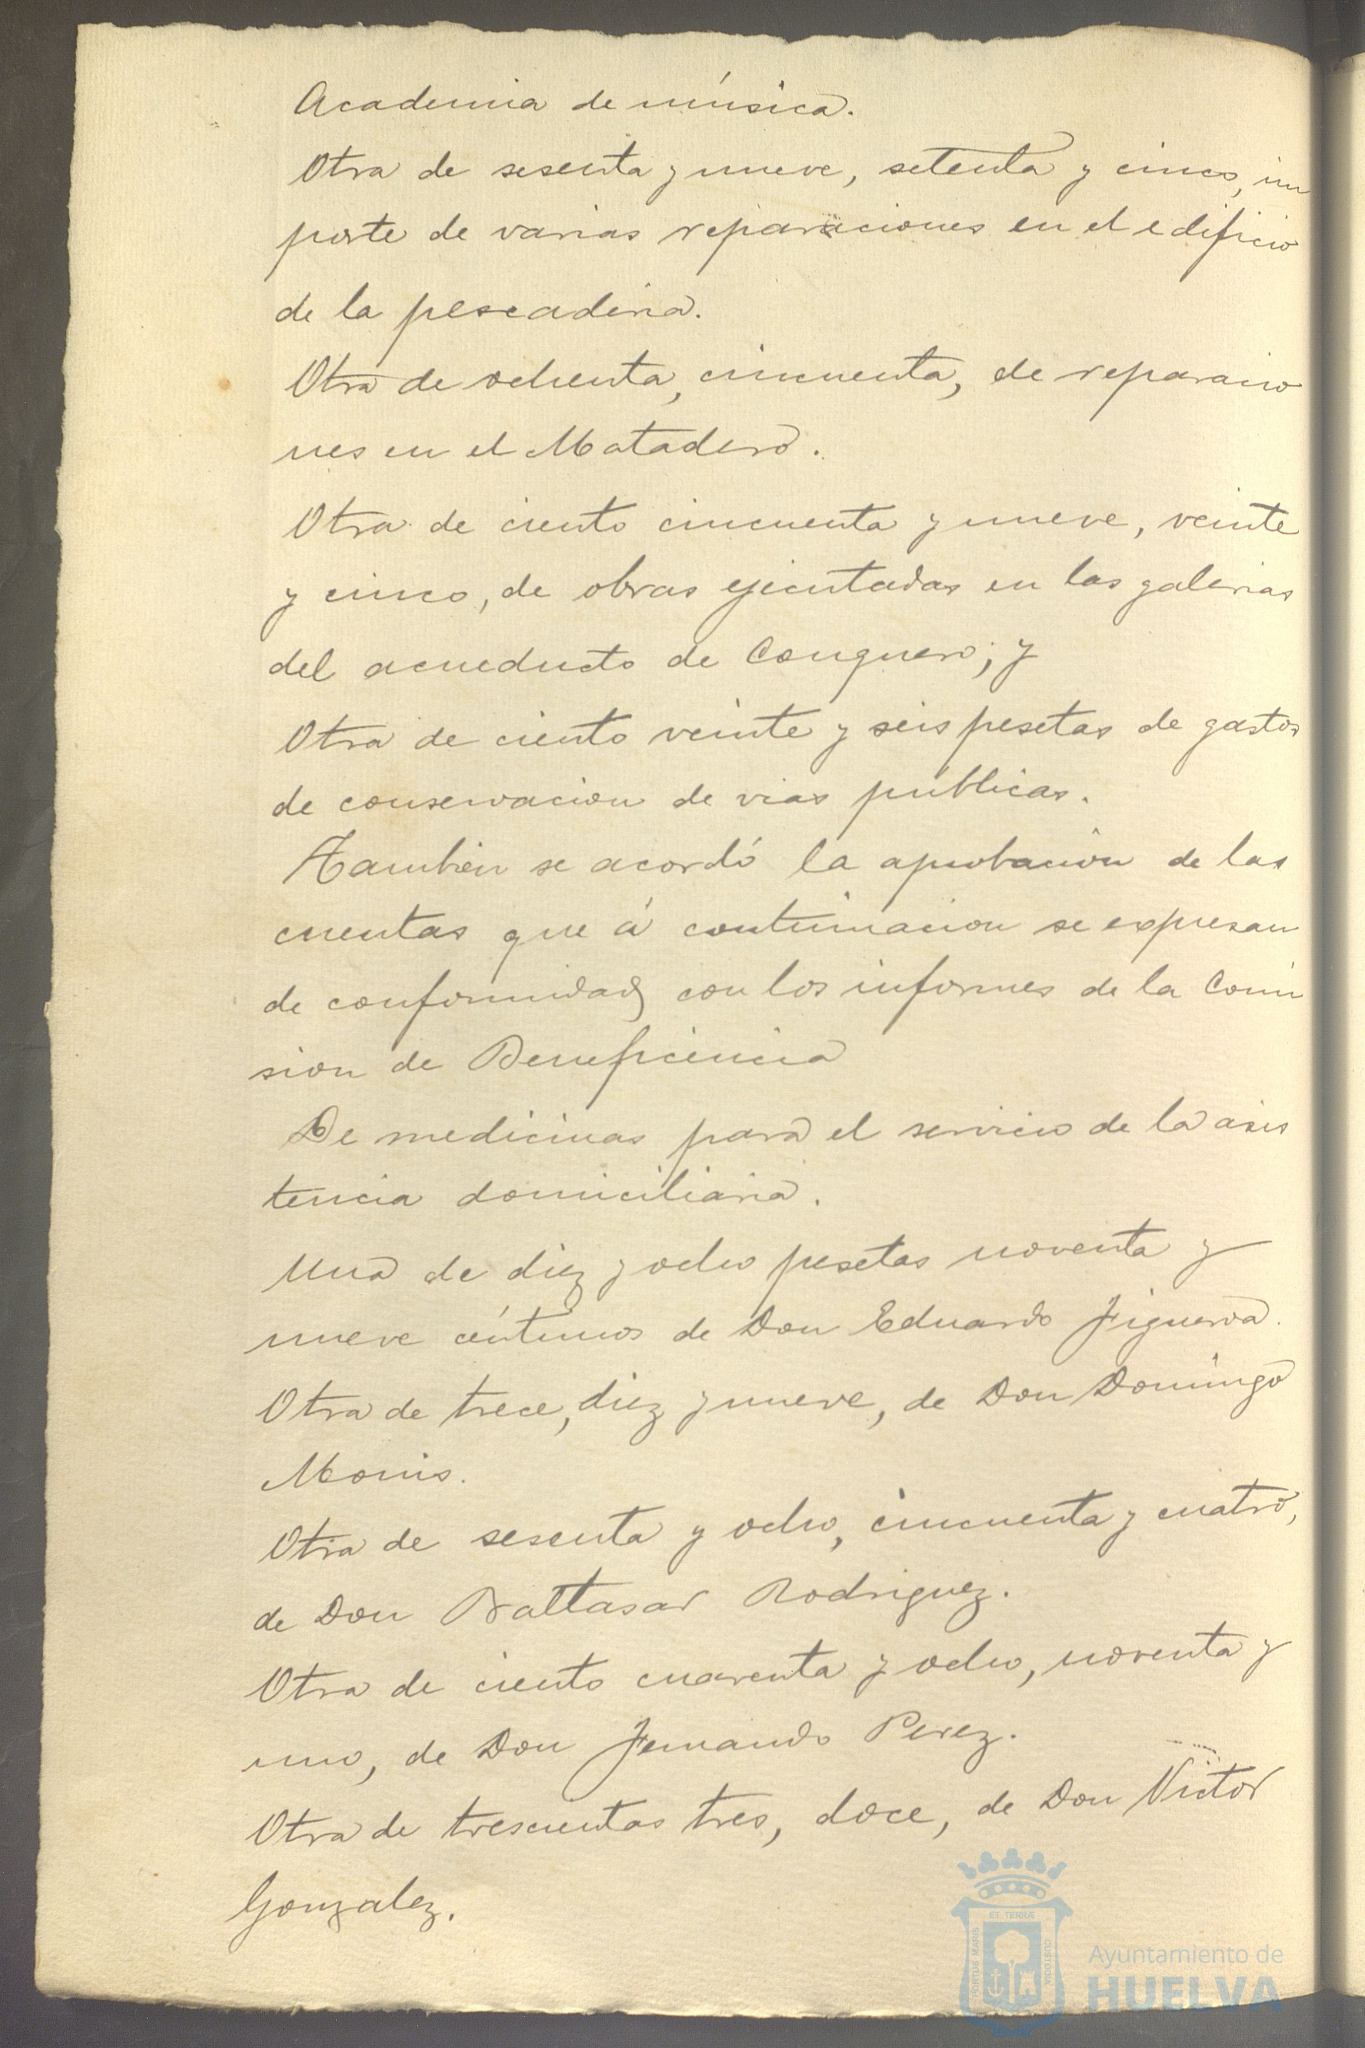 Academia de música.
Otra de sesenta y nueve, setenta y cinco, im
porte de varias reparaciones en el edificio
de la pescaderia.
Otra de ochenta, cincuenta, de reparacio
nes en el Matadero.
Otra de ciento cincuenta y nueve, veinte
y cinco, de obras ejecutadas en las galerias
del acueducto de Conquero; y
Otra de ciento veinte y seis pesetas de gastos
de conservacion de vias públicas.
Tambien se acordó la aprobación de las
cuentas que á continuacion se expresan
de conformidad con los informes de la Comi
sion de Beneficencia
De medicinas para el servicio de la asis
tencia domiciliaria.
Una de diez y ocho pesetas noventa y
nueve céntimos de Don Eduardo Figueroa.
Otra de trece, diez y nueve, de Don Domingo
Monis.
Otra de sesenta y ocho, cincuenta y cuatro,
de Don Baltasar Rodriguez.
Otra de ciento cuarenta y ocho, noventa y
uno, de Don Fernando Perez.
Otra de trescientas tres, doce, de Don Victor
Gonzalez.
PORTUS MARIS
ET TERRÆ
CUSTODIA
Ayuntamiento de
HUELVA